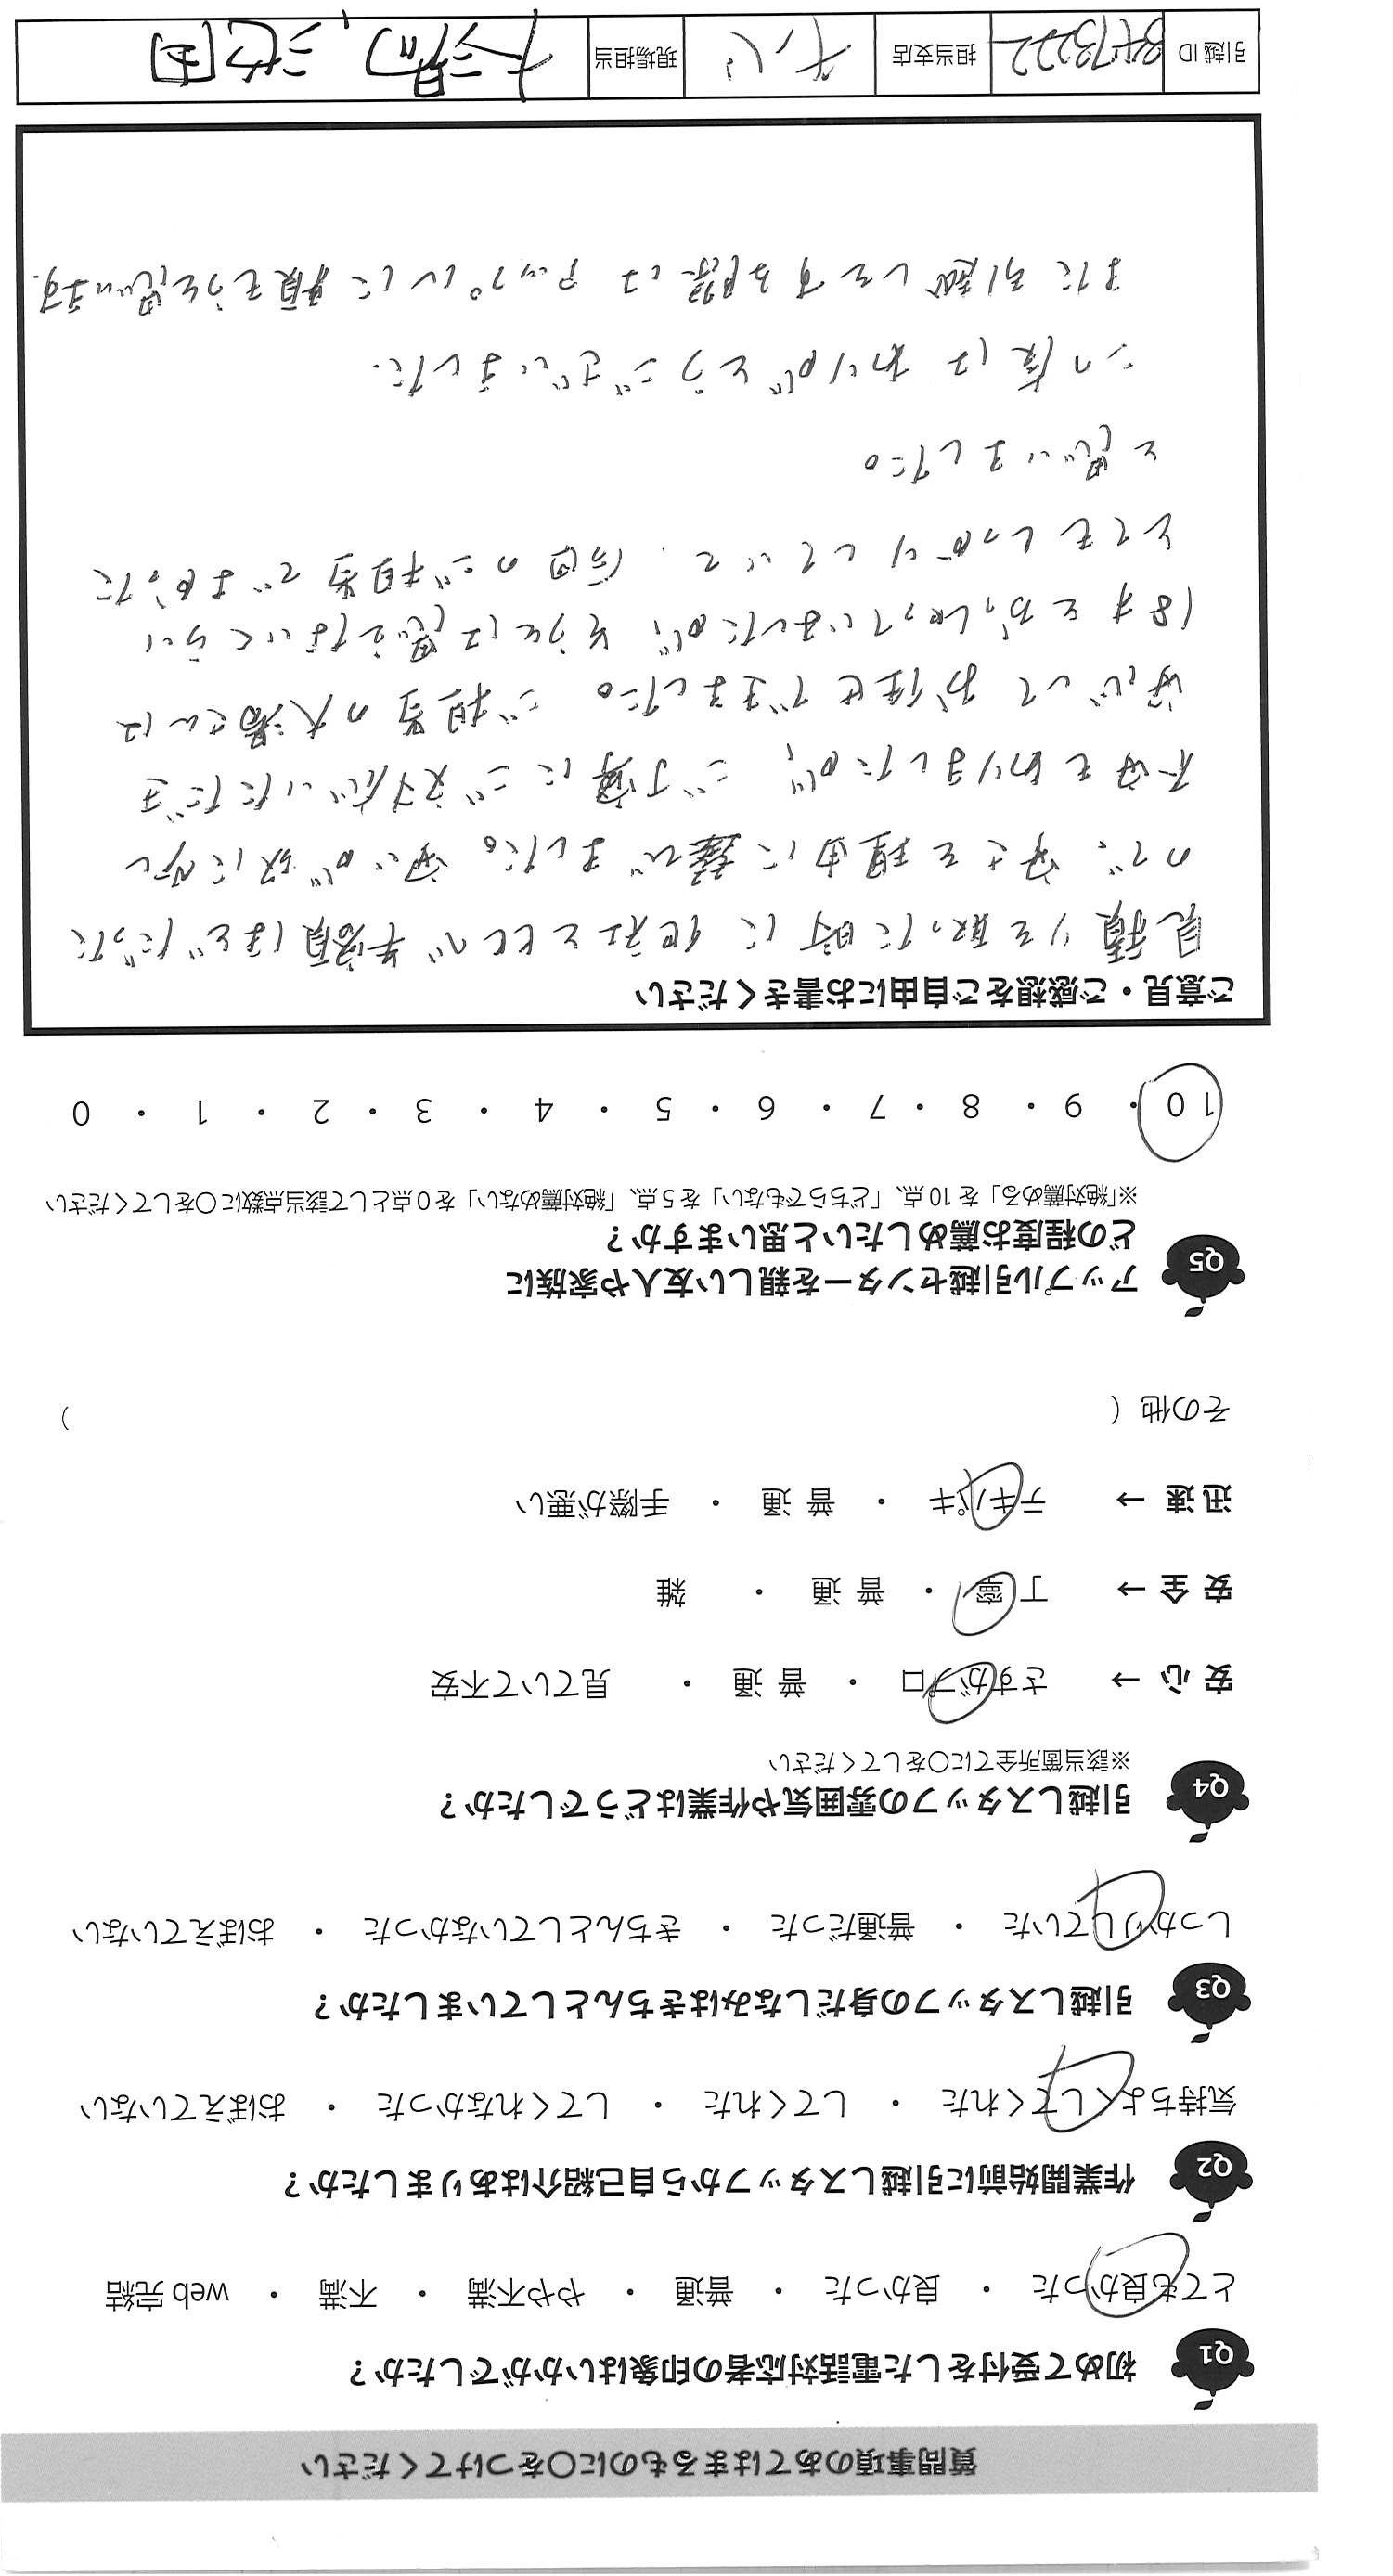 質問事項のあてはまるものに〇をつけてください
Q1 初めて受付をした電話対応者の印象はいかがでしたか？
とても良かった ・ 良かった ・ 普通 ・ やや不満 ・ 不満 ・ web 完結
Q2 作業開始前に引越しスタッフから自己紹介はありましたか？
気持ちよくしてくれた ・ してくれた ・ してくれなかった ・ おぼえていない
Q3 引越しスタッフの身だしなみはきちんとしていましたか？
しっかりしていた ・ 普通だった ・ きちんとしていなかった ・ おぼえていない
Q4 引越しスタッフの雰囲気や作業はどうでしたか？
※該当箇所全てに〇をしてください
安 心 → さすがプロ ・ 普 通 ・ 見ていて不安
安 全 → 丁 寧 ・ 普 通 ・ 雑
迅 速 → テキパキ ・ 普 通 ・ 手際が悪い
その他（ ）
Q5 アップル引越センターを親しい友人や家族に
どの程度お薦めしたいと思いますか？
※「絶対薦める」を 10 点、「どちらでもない」を 5 点、「絶対薦めない」を 0 点として該当点数に〇をしてください
10 ・ 9 ・ 8 ・ 7 ・ 6 ・ 5 ・ 4 ・ 3 ・ 2 ・ 1 ・ 0
ご意見・ご感想をご自由にお書きください
見積りを取った時に他社と比べ半額ほどだった
ので、安さを理由に選びました。安いが故に少し
不安もありましたが、ご丁寧にご対応いただき
安心してお任せできました。ご担当の大湯さんは
18才とおっしゃっていましたが、そうとは思えないくらい
とてもしっかりしていて、今回のご担当でよかった
と思いました。
この度はありがとうございました.
また引越しをする際はアップルに頼もうと思います.
引越 ID 担当支店 現場担当 大湯